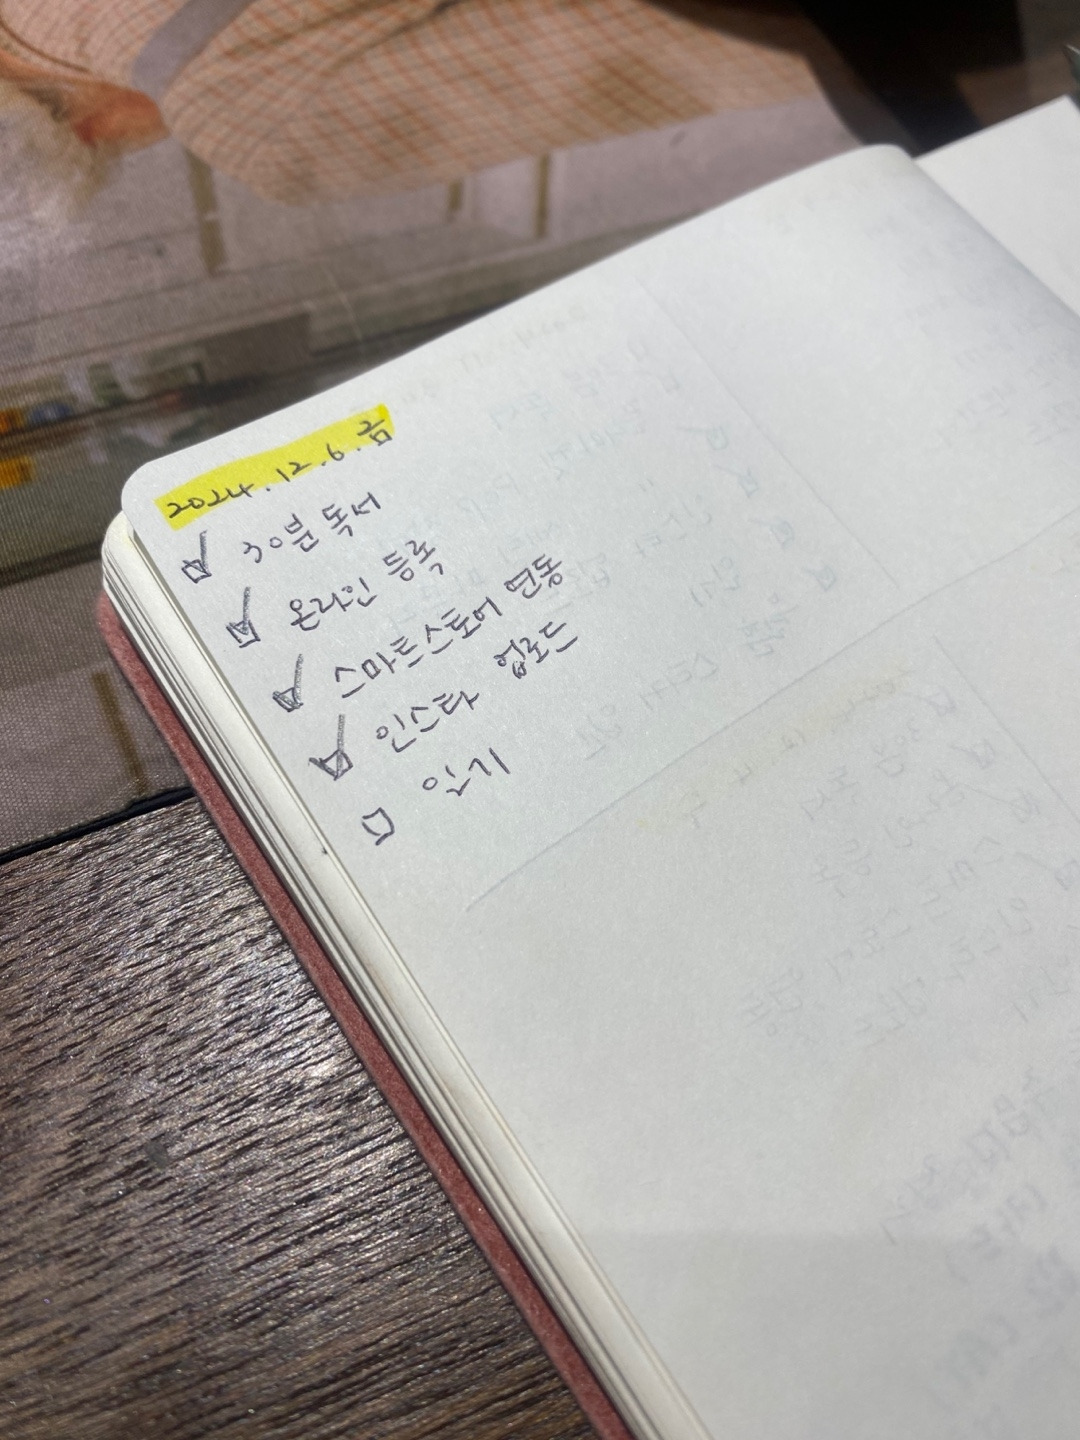 2024.12.6.금
30분 독서
온라인 등록
스마트스토어 연동
인스타 업로드